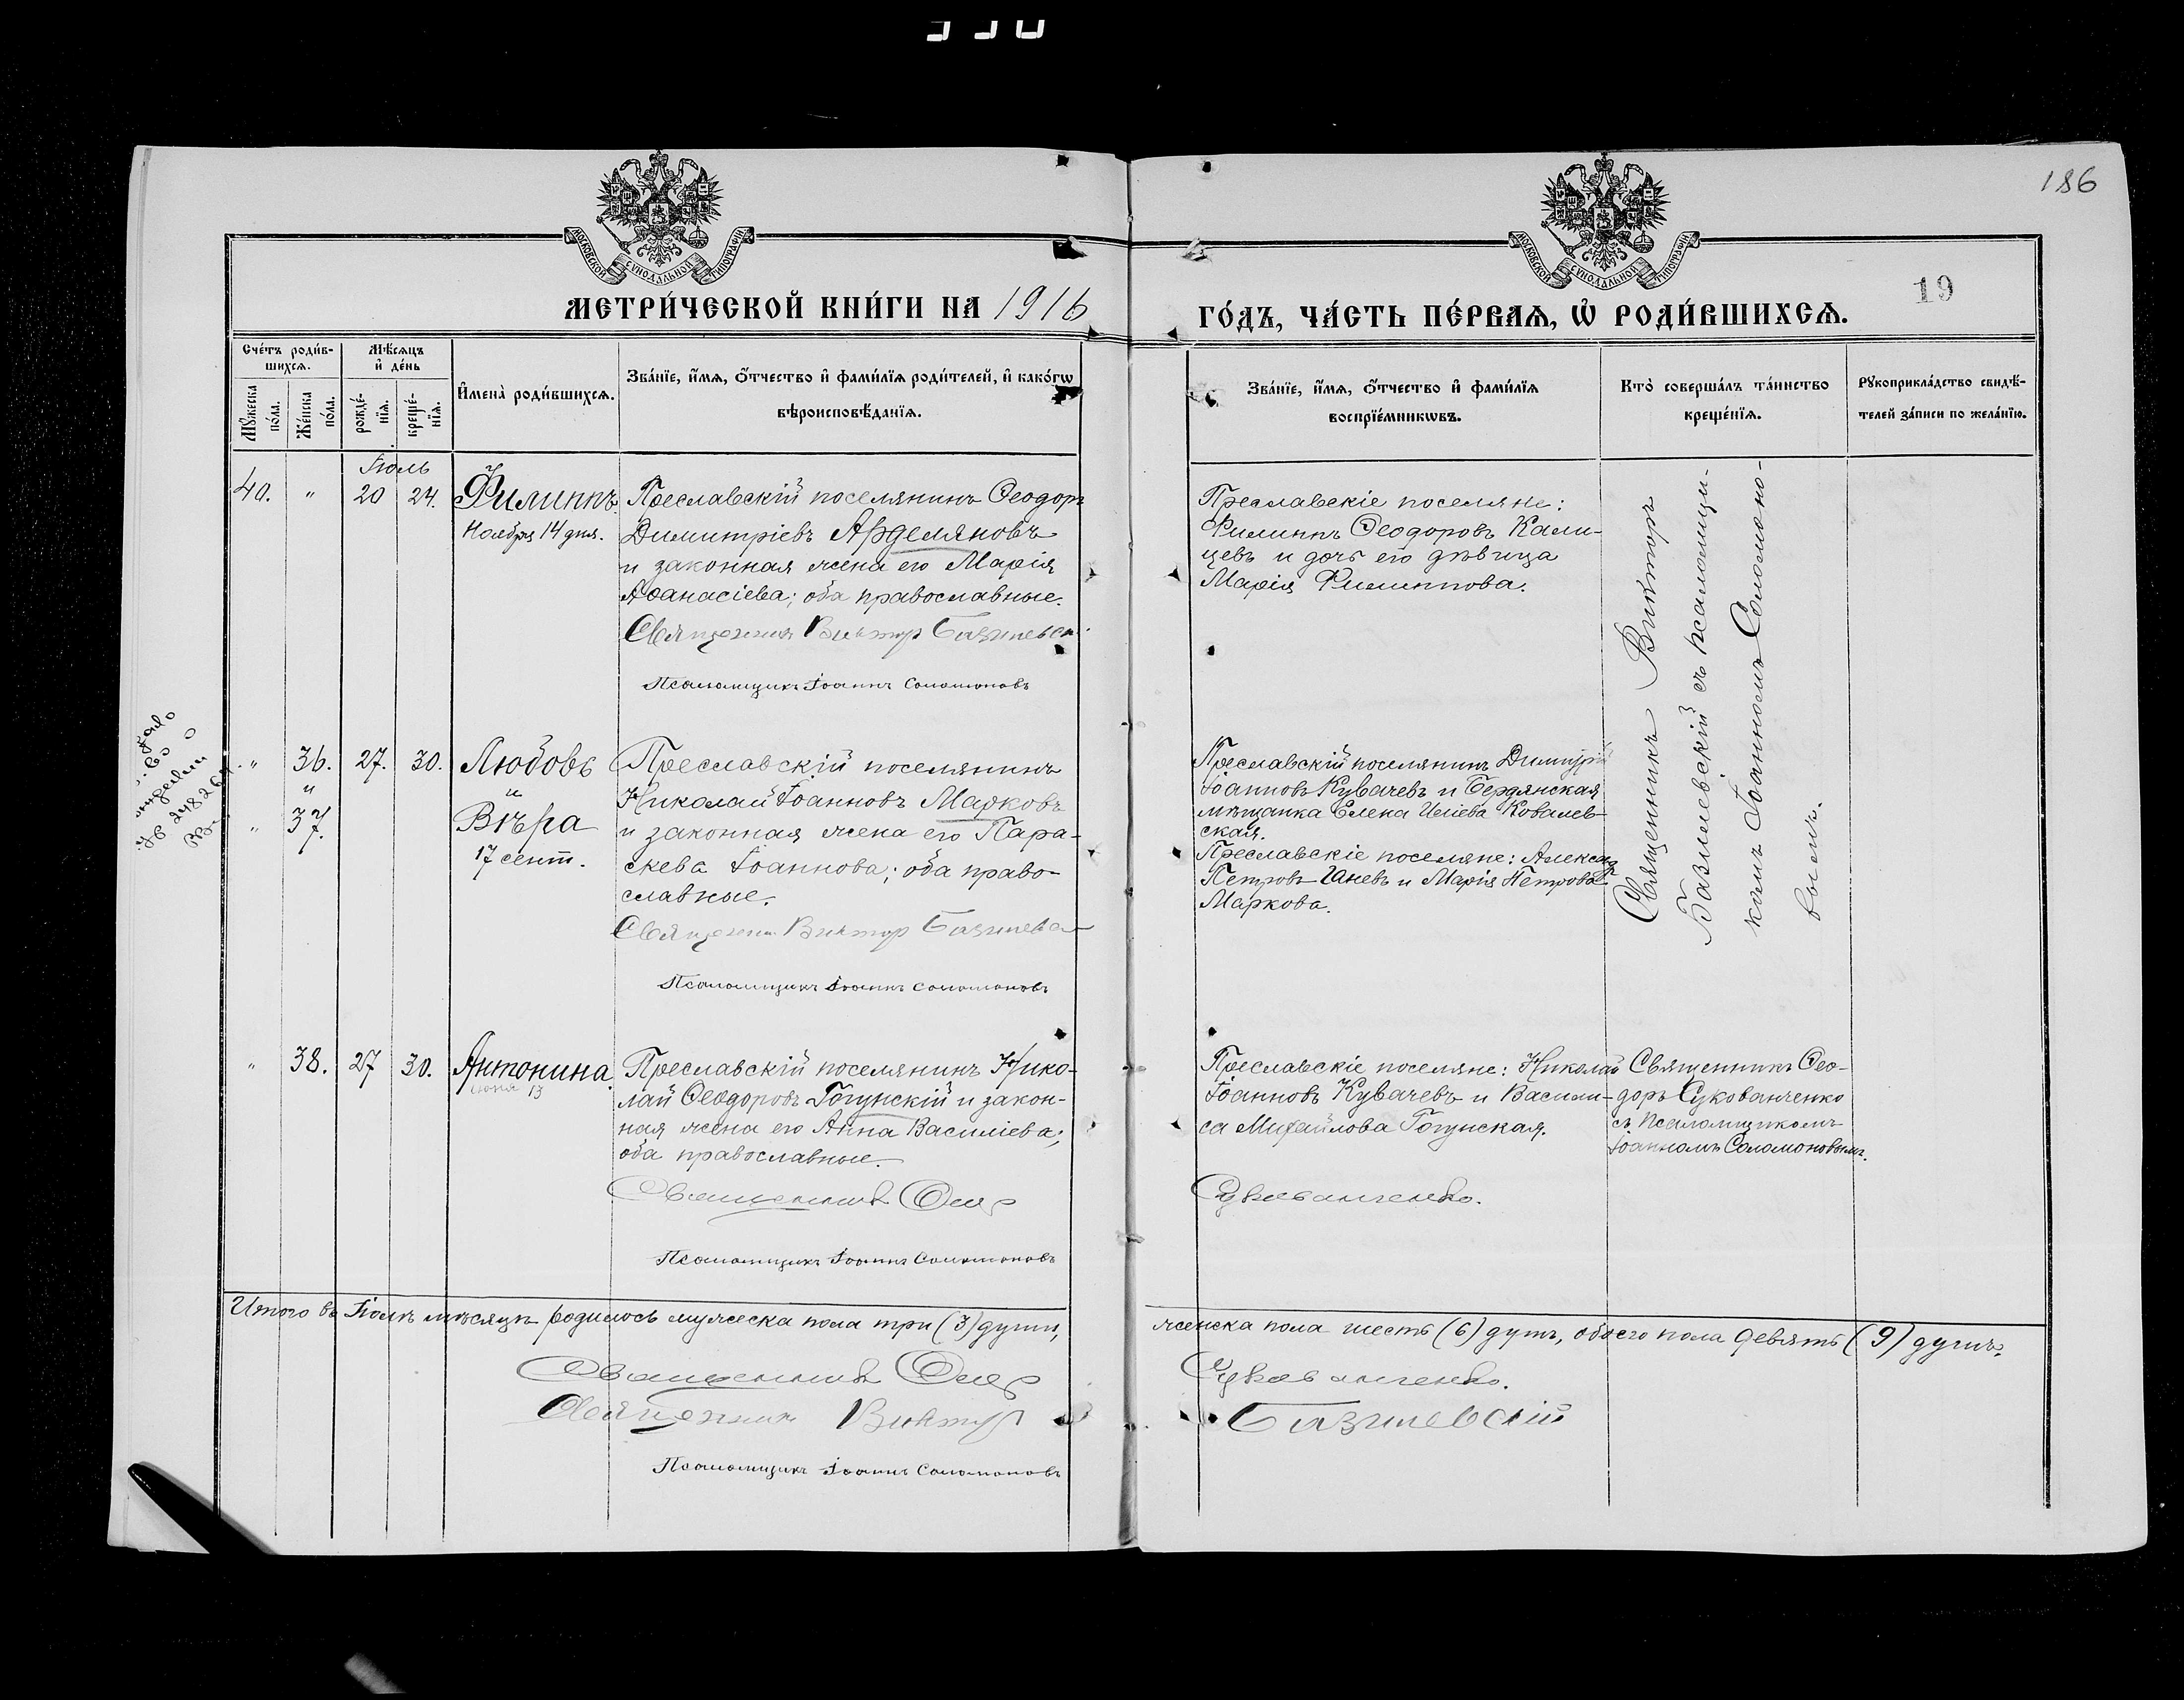 186
МОСКОВСКОЙ СѴНОДАЛЬНОЙ ТИПОГРАФІИ
МОСКОВСКОЙ СѴНОДАЛЬНОЙ ТИПОГРАФІИ
19
МЕТРИ́ЧЕСКОЙ КНИ́ГИ НА 1916
ГО́ДЪ, ЧА́СТЬ ПЕ́РВАѦ, Ѡ҆ РОДИ́ВШИХСѦ.
Сче́тъ роди́в-
шихсѧ.
Мꙋ́жеска по́ла.
Же́нска по́ла.
Мѣ́сѧцъ
и҆ де́нь
рожде́-
нїѧ.
креще́-
нїѧ.
И҆мена̀ роди́вшихсѧ.
Зва́нїе, и҆́мѧ, ѻ҆́тчество и҆ фами́лїѧ роди́телей, и҆ како́гѡ
вѣроисповѣ́данїѧ.
Зва́нїе, и҆́мѧ, ѻ҆́тчество и҆ фами́лїѧ
воспрїе́мникѡвъ.
Кто̀ соверша́лъ та́инство
креще́нїѧ.
Рꙋкоприкла́дство свидѣ́-
телей за́писи по жела́нїю.
Іюль
40. " 20 24. Филиппъ.
Ноября 14 дня.
Преславскій поселянинъ Ѳеодоръ
Димитріевъ Арделяновъ
и законная жена его Марія
Аѳанасіева; оба православные.
Священникъ Виктор Базилевск
Псаломщикъ Іоаннъ Соломоновъ
Преславскіе поселяне:
Филиппъ Ѳеодоровъ Кали-
цевъ и дочь его дѣвица
Марія Филиппова.
Священникъ Викторъ
Базилевскій съ псаломщи-
комъ Іоанномъ Соломоно-
вымъ.
" 36. 27. 30. Любовь
и и
" 37. Вѣра
17 сент.
Преславскій поселянинъ
Николай Іоанновъ Марковъ
и законная жена его Пара-
скева Іоаннова; оба право-
славные.
Виктор
Псаломщикъ Іоаннъ Соломоновъ
Преславскій поселянинъ Димитрій
Іоанновъ Кувачевъ и Бердянская
мѣщанка Елена Иліева Ковалев-
ская.
Преславскіе поселяне: Александръ
Петровъ и Марія Петрова
Маркова.
" 38. 27 30. Антонина.
13
Преславскій поселянинъ Нико-
лай Ѳеодоровъ Гогунскій и закон-
ная жена его Анна Василіева;
оба православные.
Священникъ Ѳеод
Псаломщикъ Іоаннъ Соломоновъ
Преславскіе поселяне: Николай
Іоанновъ Кувачевъ и Васили-
са Михайлова Гогунская.
Сукованченко.
Священникъ Ѳео-
доръ Сукованченко
съ псаломщикомъ
Іоанномъ Соломоновымъ.
Итого въ Іюлѣ мѣсяцѣ родилось мужеска пола три (3) души,
женска пола шесть (6) душъ, обоего пола девять (9) душъ.
Священникъ Ѳеод
Сукованченко.
Священник Виктор
Базилевскій
Псаломщикъ Іоаннъ Соломоновъ